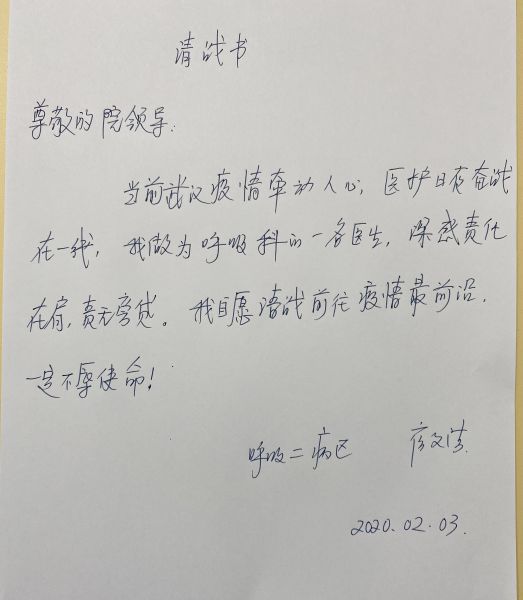 请战书
尊敬的院领导:
当前武汉疫情牵动人心,医护日夜奋战
在一线,我做为呼吸科的一名医生,深感责任
在肩,责无旁贷。我自愿请战前往疫情最前沿,
一定不辱使命!
呼吸二病区
2020.02.03.